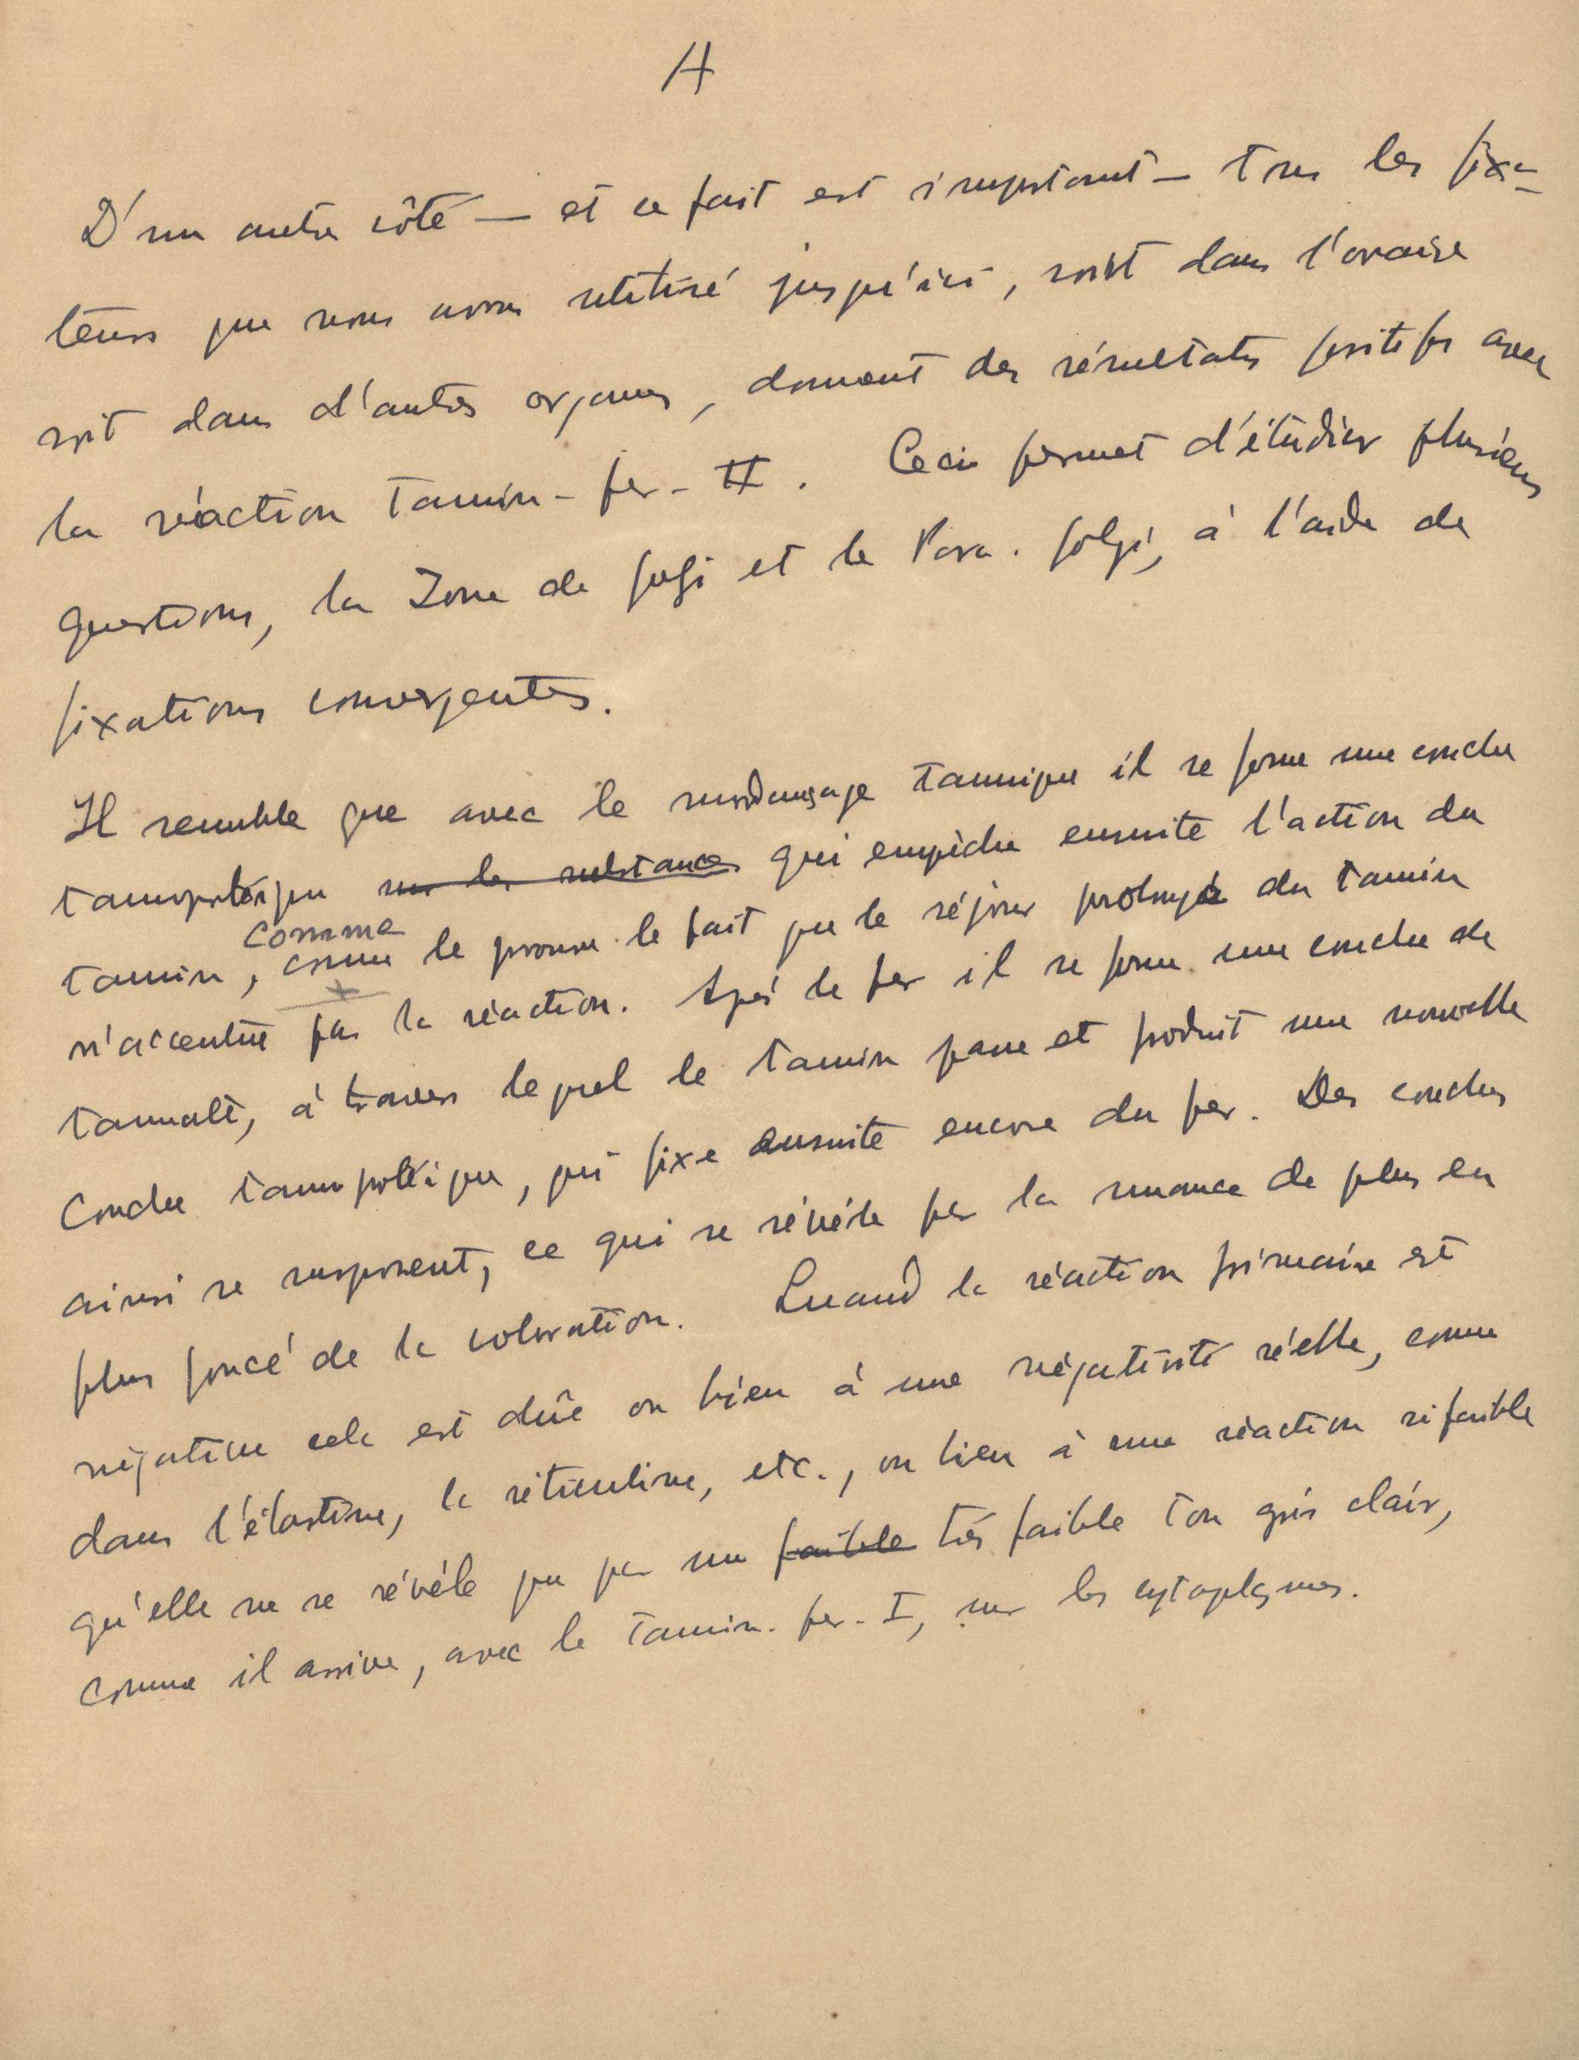 A
D'un autre côté — et ce fait est important — tous les fixa-
teurs que nous avons utilisé jusqu'ici, soit dans l'ovaire
soit dans d'autres organes, donnent des résultats positifs avec
la réaction Tannin-fer-II. Ceci permet d'étudier plusieurs
questions, la Zone de golgi et le Para.golgi, à l'aide de
fixations convergentes.
Il semble que avec le mordançage tannique il se forme une couche
tanoprotéique sur les substances qui empêche ensuite l'action du
comme
tannin, comme le prouve le fait que le séjour prolongé du tannin
n'accentue pas la réaction. Après le fer il se forme une couche de
tannate, à travers lequel le tannin passe et produit une nouvelle
couche, qui fixe ensuite encore du fer. Des couches
ainsi se superposent, ce qui se révèle par la nuance de plus en
plus foncé de la coloration. Quand la réaction primaire est
négative cela est dûe ou bien à une négativité réelle, comme
dans l'élastine, la réticuline, etc., ou bien à une réaction si faible
qu'elle ne se révèle que par un faible très faible ton gris clair,
comme il arrive, avec le tannin-fer-I, sur les cytoplasmes.